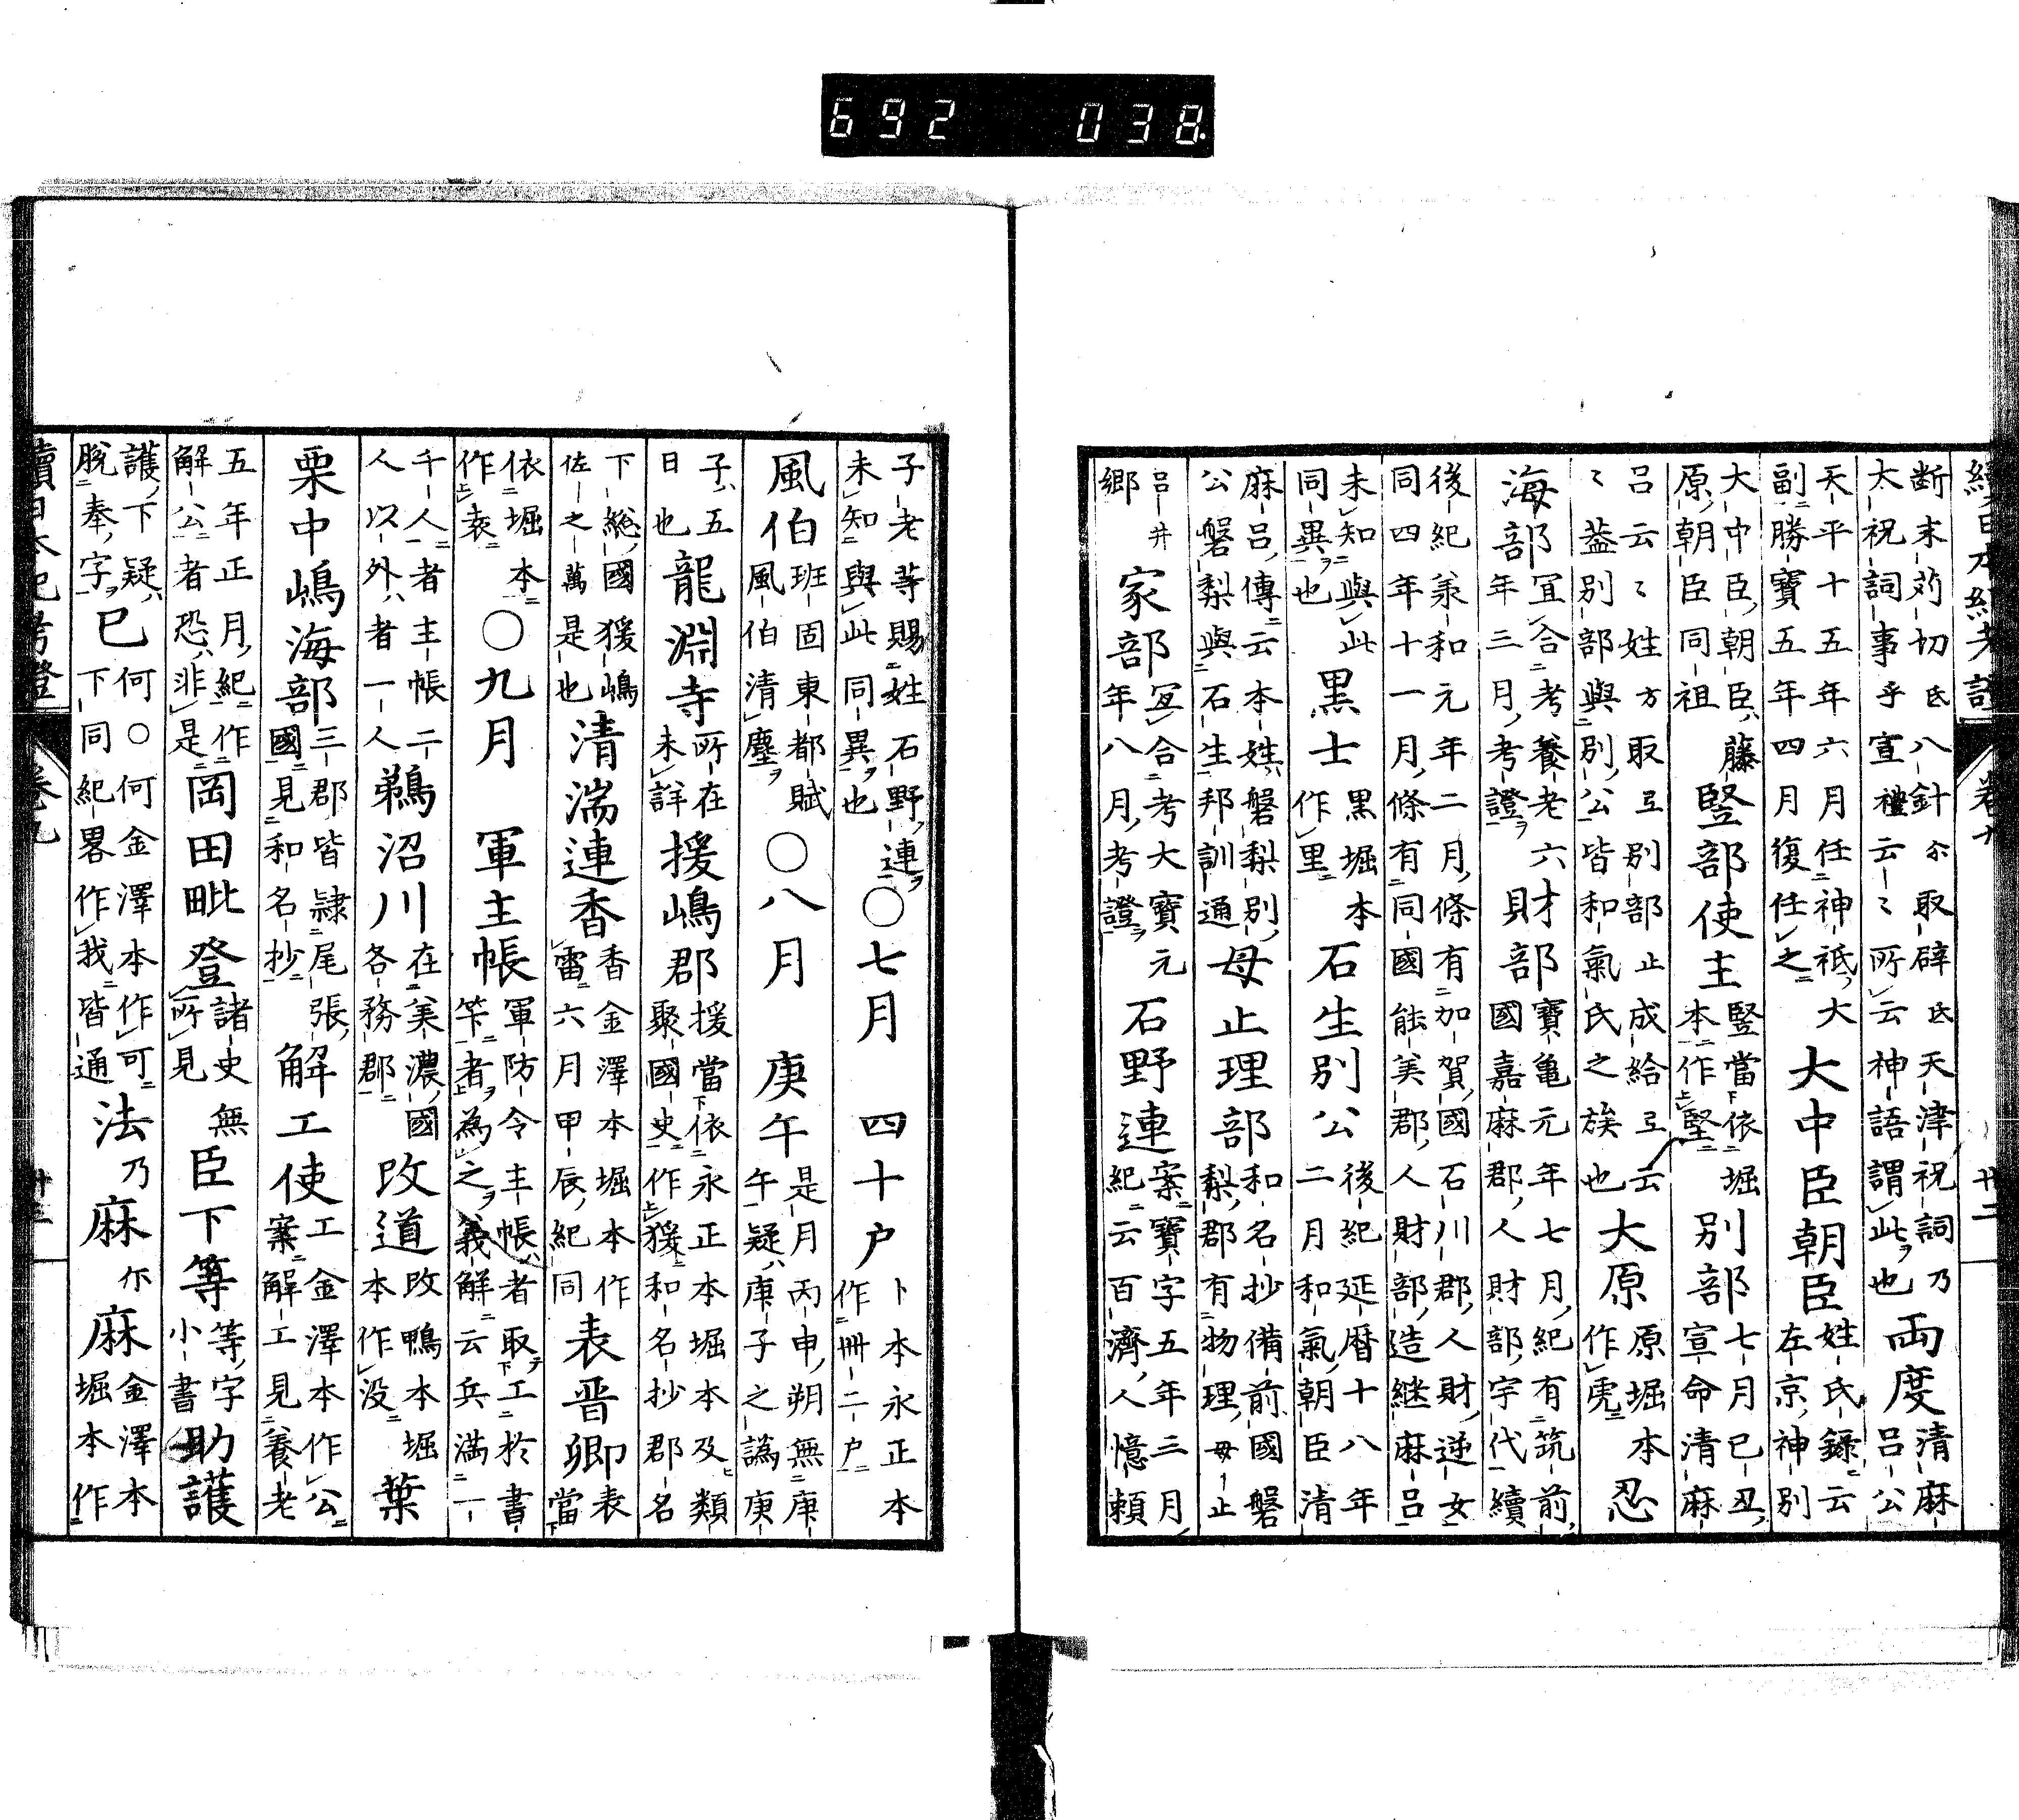 692 038.
續日本紀考證 卷九 卅二
断末苅切氐八針尒取辟氐天津祝詞乃
太祝詞事乎宣禮云〻所云神語謂此也
両度
清麻呂公
天平十五年六月任神祇大
副勝寶五年四月復任之
大中臣朝臣
姓氏録云
左京神別
大中臣朝臣藤
原朝臣同祖
竪部使主
竪當依堀
本作堅
別部
七月己丑
宣命清麻
呂云〻姓方取弖別部止成給弖云
〻葢別部與別公皆和氣氏之族也
大原
原堀本
作虎
忍
海部
冝合考養老六
年三月考證
財部
寶龜元年七月紀有筑前
國嘉麻郡人財部宇代續
後紀兼和元年二月條有加賀國石川郡人財逆女
同四年十一月條有同國能美郡人財部造継麻呂
未知與此
同異也
黒士
黒堀本
作里
石生別公
後紀延暦十八年
二月和氣朝臣清
麻呂傳云本姓磐梨別
公磐梨與石生邦訓通
母止理部
和名抄備前國磐
梨郡有物理母止
呂井
郷
家部
冝合考大寶元
年八月考證
石野連
案寶字五年三月
紀云百濟人憶頼
子老等賜姓石野連
未知與此同異也
〇七月 四十戸
卜本永正本
作卌二戸
風伯
班固東都賦
風伯清塵
〇八月 庚午
是月丙申朔無庚
午疑庚子之譌庚
子五
日也
龍淵寺
所在
未詳
援嶋郡
援當依永正本堀本及類
聚國史作猨和名抄郡名
下総國猨嶋
佐之萬是也
清湍連香
香金澤本堀本作
雷六月甲辰紀同
表晋卿
表
當
依堀本
作袁
〇九月 軍主帳
軍防令主帳者取工於書
笇者為之義解云兵満一
千人者主帳二
人以外者一人
鵜沼川
在美濃國
各務郡
改道
改鴨本堀
本作没
葉
栗中嶋海部
三郡皆隷尾張
國見和名抄
解工使
工金澤本作公
案解工見養老
五年正月紀作
解公者恐非是
岡田毗登
諸史無
所見
臣下等
等字金澤本
小書
助護
護下疑
脱奉字
已
何〇何金澤本作可
下同紀畧作我皆通
法乃麻尒麻
堀本作
續日本紀考證 卷九 卅三